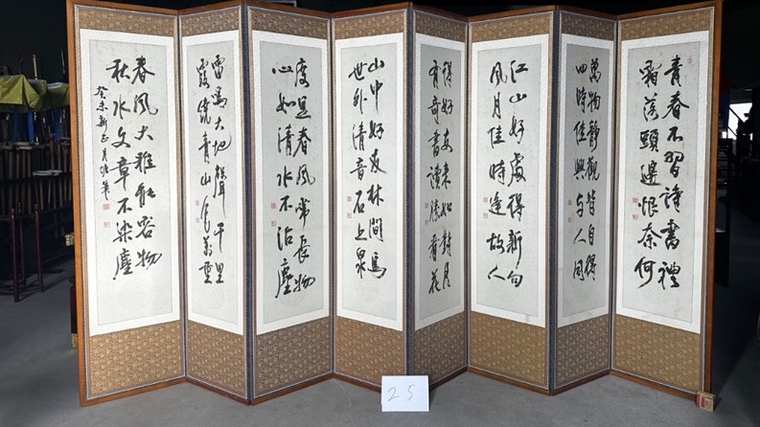 青春不習詩書禮
霜落頭邊恨奈何
萬物靜觀皆自得
四時佳興与人同
江山好處得新句
風月佳時逢故人
得好友來如對月
有奇書讀勝看花
山中好友林間鳥
世外清音石上泉
度是春風常長物
心如清水不沾塵
雷鳴大地聲千里
青山萬
春風大雅能容物
秋水文章不染塵
癸未新正月
25